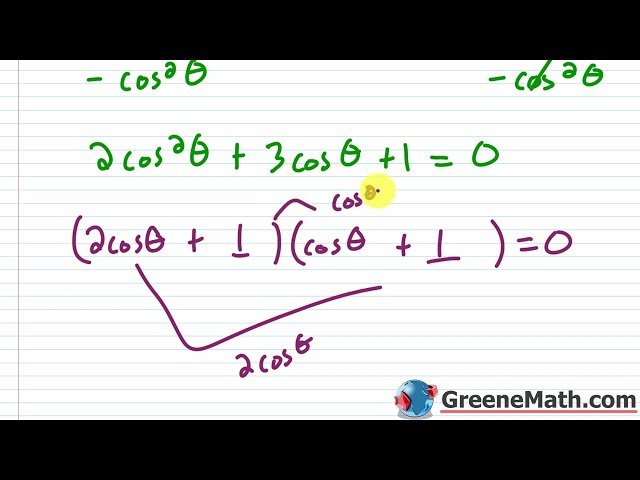 - cos²θ - cos²θ
2cos²θ + 3cosθ + 1 = 0
cosθ
(2cosθ + 1)(cosθ + 1) = 0
2cosθ
GreeneMath.com